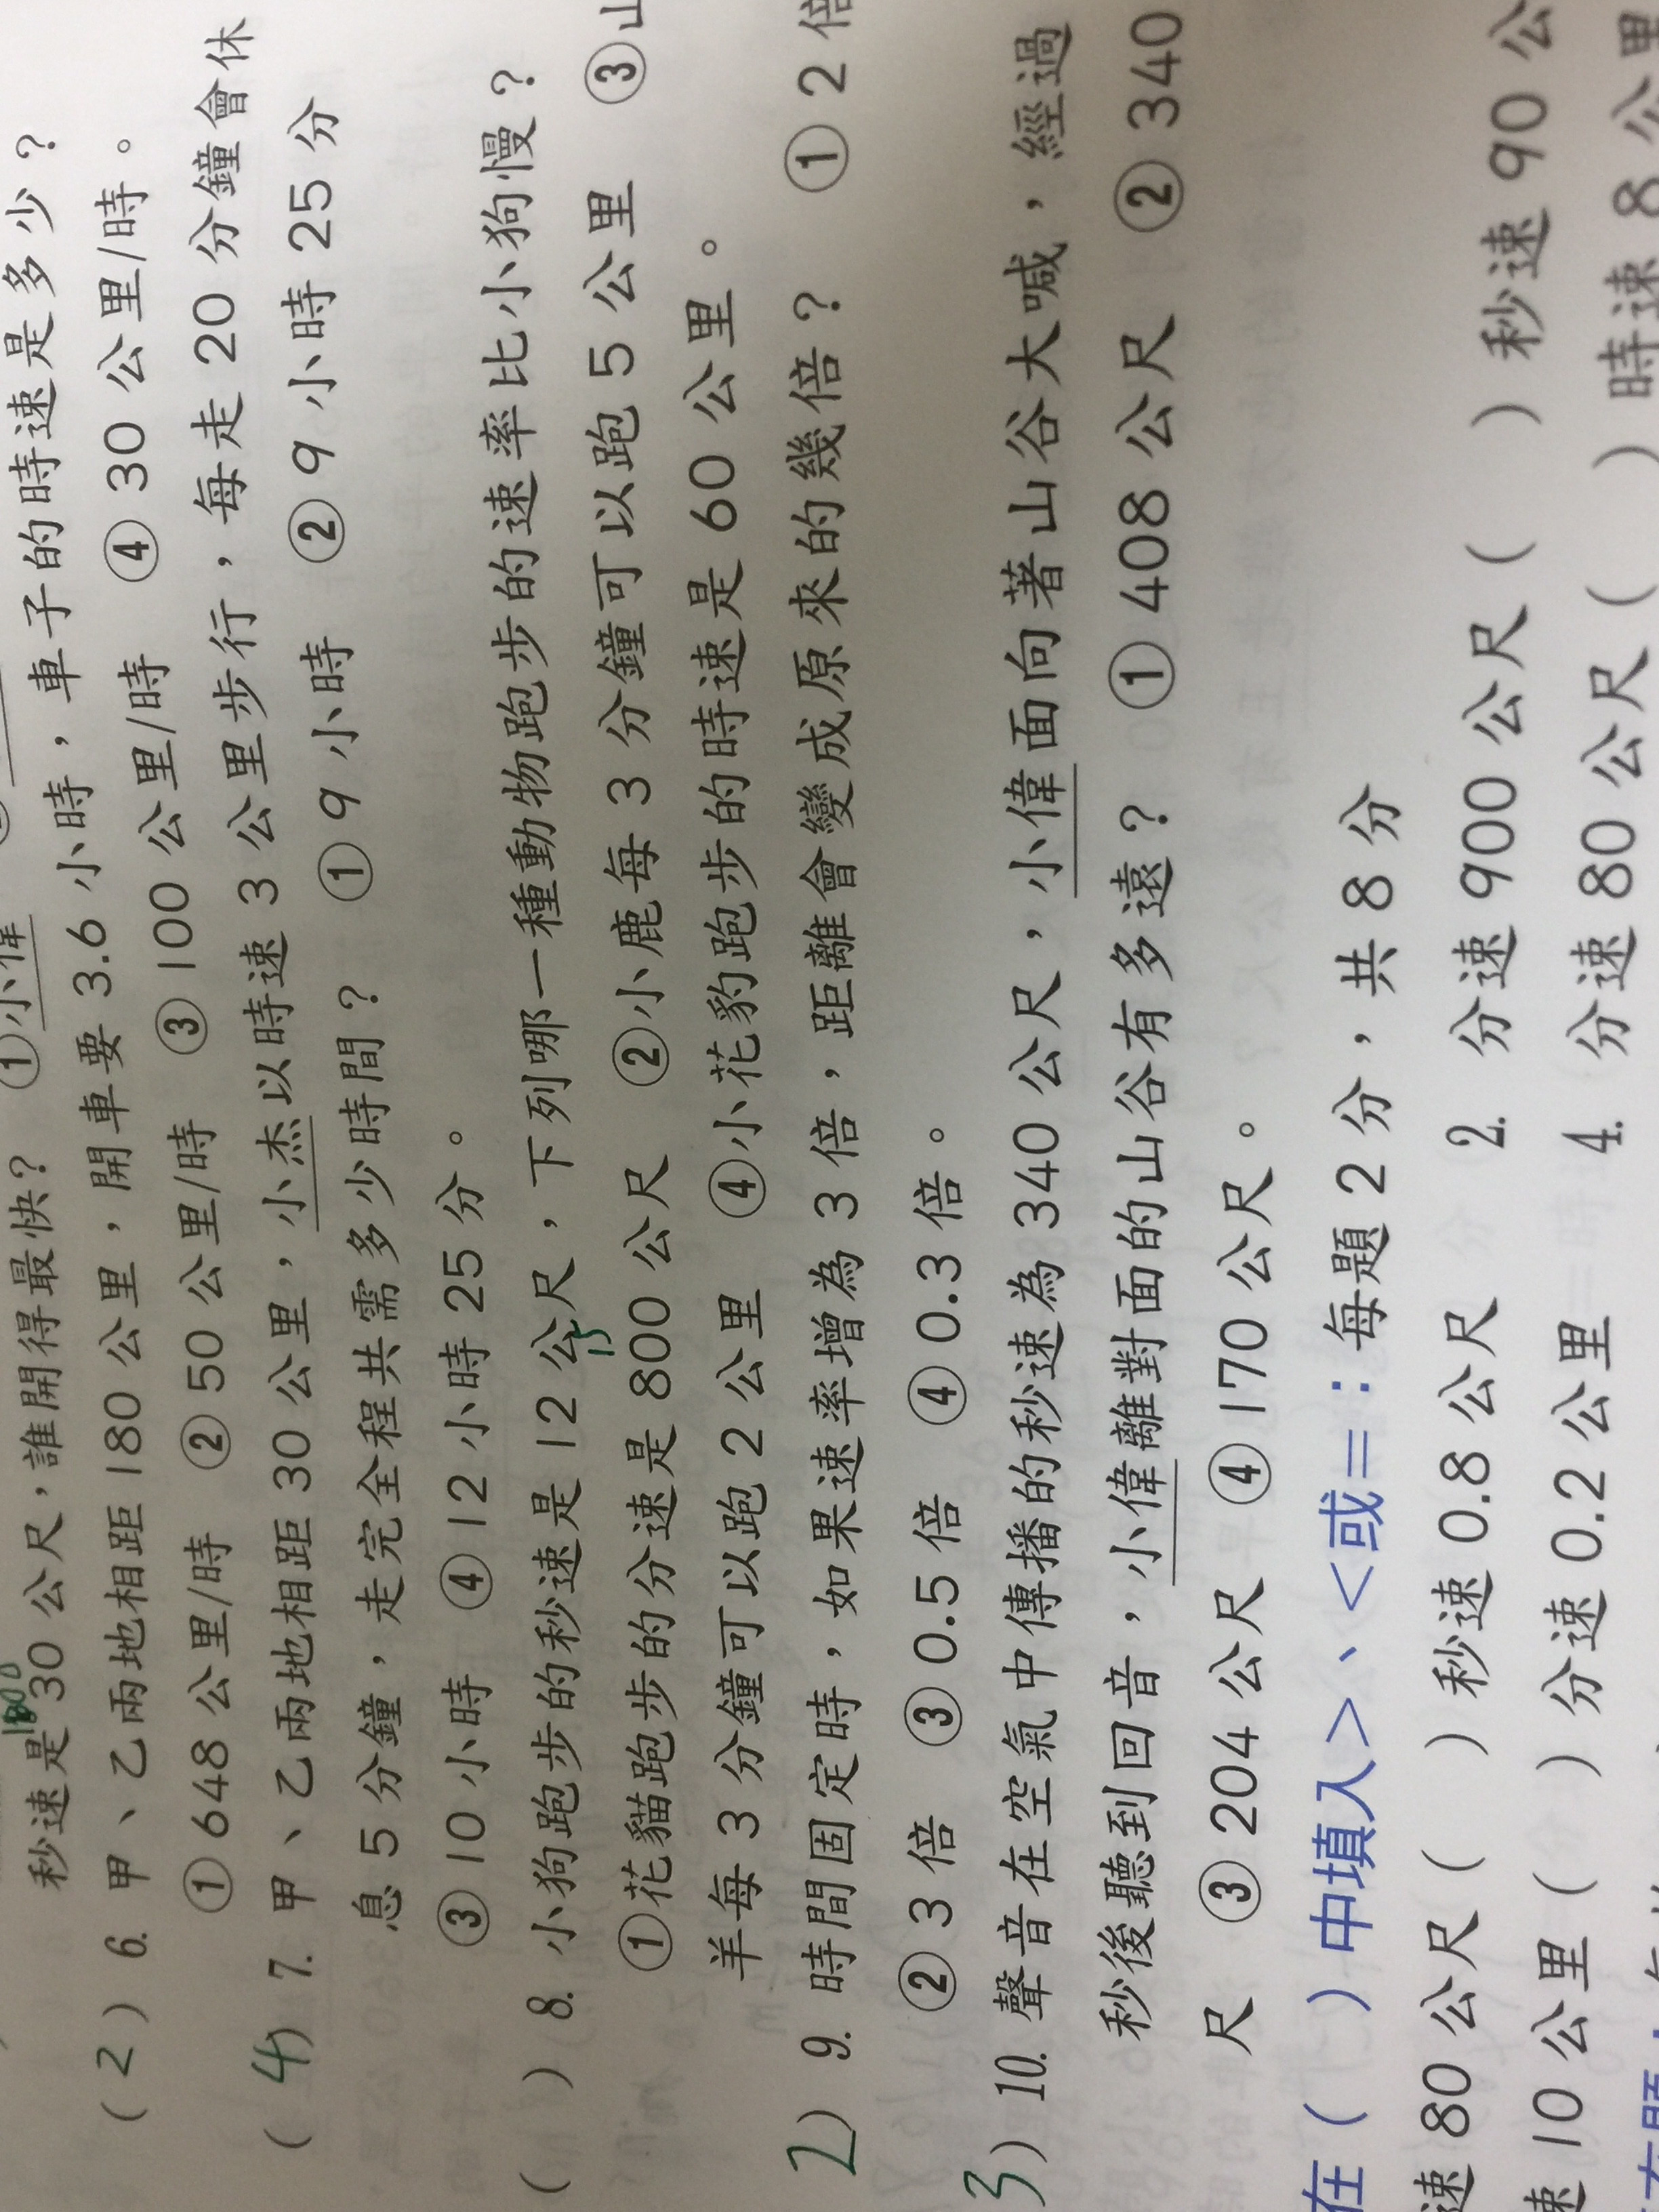 秒速是30公尺，誰開得最快？ ①小偉
(2) 6. 甲、乙兩地相距180公里，開車要3.6小時，車子的時速是多少？
①648公里/時 ②50公里/時 ③100公里/時 ④30公里/時。
(4) 7. 甲、乙兩地相距30公里，小杰以時速3公里步行，每走20分鐘會休
息5分鐘，走完全程共需多少時間？ ①9小時 ②9小時25分
③10小時 ④12小時25分。
( ) 8. 小狗跑步的秒速是12公尺，下列哪一種動物跑步的速率比小狗慢？
①花貓跑步的分速是800公尺 ②小鹿每3分鐘可以跑5公里 ③山
羊每3分鐘可以跑2公里 ④小花豹跑步的時速是60公里。
2) 9. 時間固定時，如果速率增為3倍，距離會變成原來的幾倍？ ①2倍
②3倍 ③0.5倍 ④0.3倍。
3) 10. 聲音在空氣中傳播的秒速為340公尺，小偉面向著山谷大喊，經過
秒後聽到回音，小偉離對面的山谷有多遠？ ①408公尺 ②340
尺 ③204公尺 ④170公尺。
在( )中填入>、<或=：每題2分，共8分
速80公尺( )秒速0.8公尺 2. 分速900公尺( )秒速90公
速10公里( )分速0.2公里 4. 分速80公尺( )時速8公里